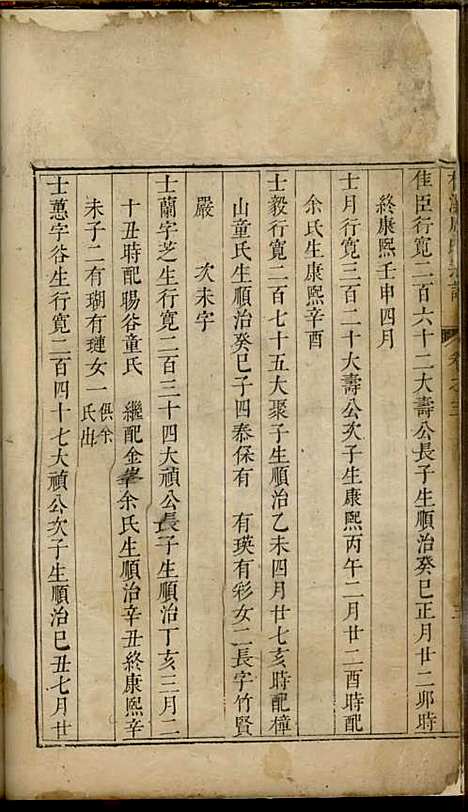 佳臣行寛二百六十二大壽公長子生順治癸巳正月廿二卯時
終康熙壬申四月
士月行寛三百二十大壽公次子生康熙丙午二月廿二酉時配
余氏生康熙辛酉
士毅行寛二百七十五大聚子生順治乙未四月廿七亥時配樟
山童氏生順治癸巳子四泰保有　有瑛有彩女二長字竹賢
嚴　次未字
士蘭字芝生行寛二百三十四大禎公長子生順治丁亥三月二
十丑時配賜谷童氏　繼配金華余氏生順治辛丑終康熙辛
未子二有瑚有璉女一俱余氏出
士蕙字谷生行寛二百四十七大禎公次子生順治己丑七月廿